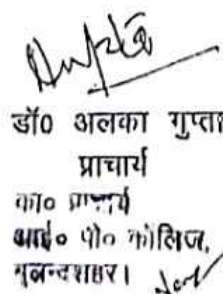 डॉ0 अलका गुप्ता
प्राचार्य
का० प्राचार्य
आई० पी० कॉलिज,
बुलन्दशहर।